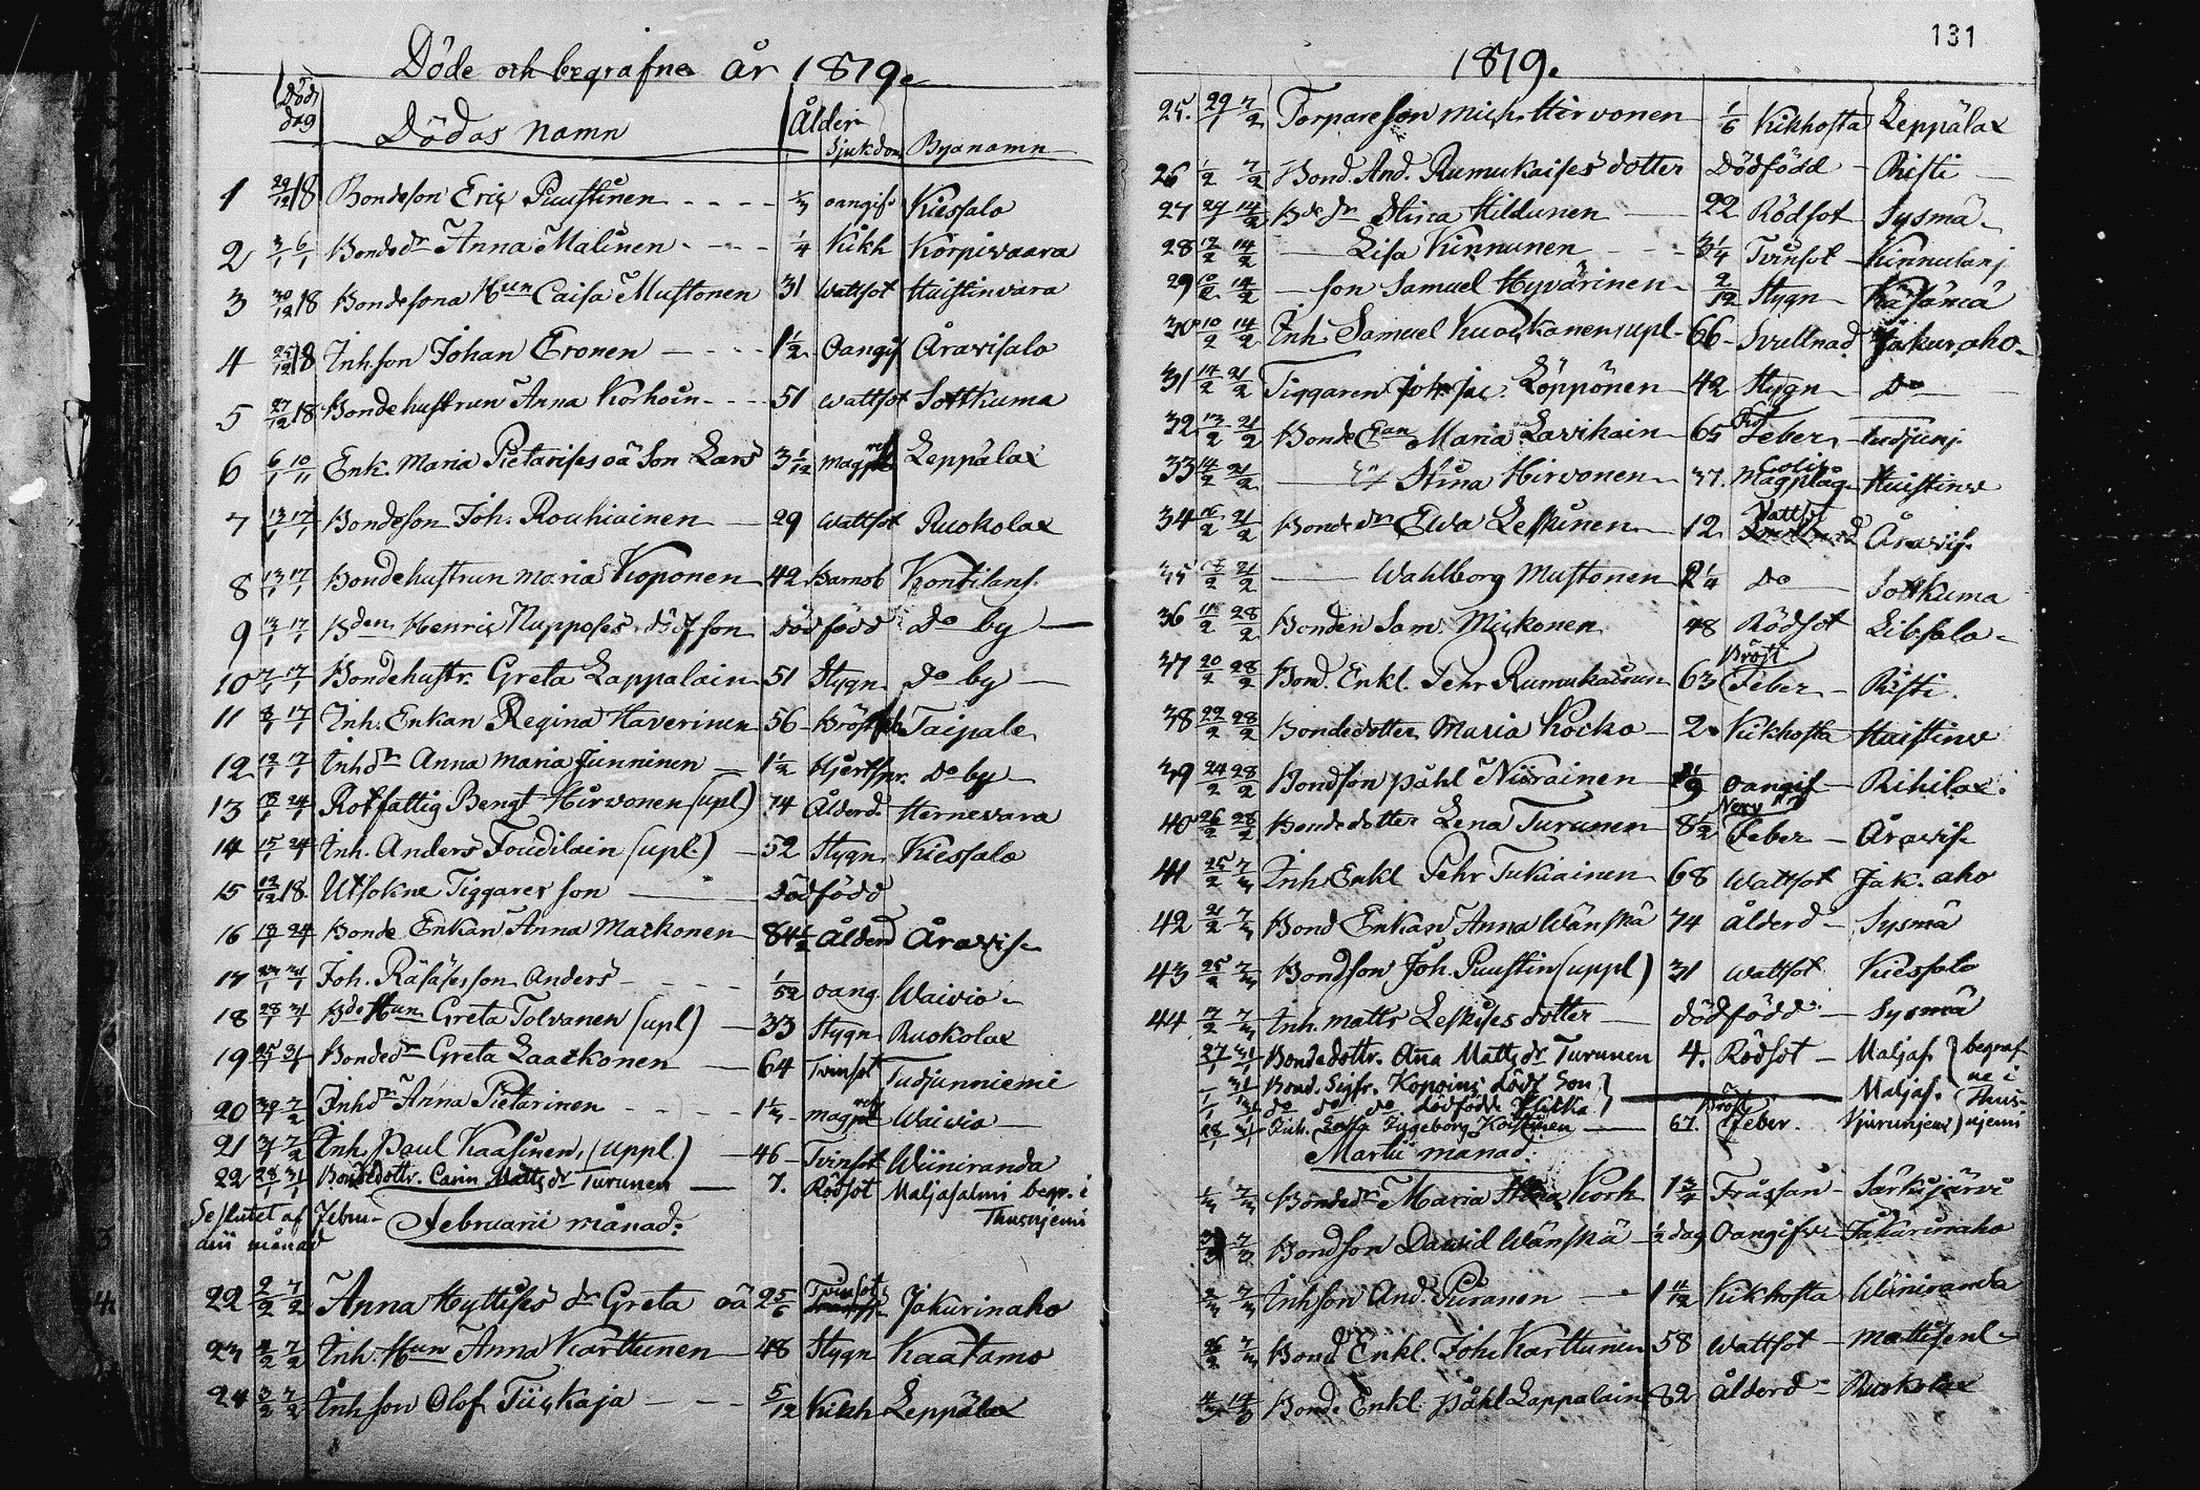 Döde och begrafne år 1819.
Död dag
Dödas namn Ålder Sjukdom Byanamn
1 29/12 18 Bondeson Eric Puustinen 1/3 oangif. Kiessalo
2 3/1 6/1 Bondedr Anna Malinen 1/4 Kikh Korpivaara
3 30/12 18 Bondesona Hun Caisa Mustonen 31 Wattsot Huistinvara
4 25/12 18 Inhson Johan Eronen 1 1/2 Oangif Åravisalo
5 27/12 18 Bondehustrun Anna Korhoin 51 Wattsot Sottkuma
6 6/1 10/1 Enk. Maria Pietarises oä Son Lars 3 1/12 Leppälax
7 13/1 17/1 Bondeson Joh. Rouhiainen 29 Wattsot Ruokolax
8 13/1 17/1 Bondehustrun Maria Koponen 42 Barnsb Kontilans.
9 13/1 17/1 Bden Henric Nupposes dödf son dödfödd Do by
10 7/1 17/1 Bondehustr. Greta Lappalain 51 Stygn Do by
11 8/1 17/1 Inh. Enkan Regina Haverinen 56 Taipale
12 12/1 17/1 Inhdr Anna Maria Junninen 1 1/2 Do by
13 18/1 24/1 Rotfattig Bengt Hirvonen (upl) 74 Ålderd. Hernevara
14 15/1 24/1 Inh. Anders Toudilain (upl.) 52 Stygn Kiessalo
15 12/12 18. Utsokne Tiggares son Dödfödd
16 18/1 24/1 Bonde Enkan Anna Markonen 84 1/2 Ålderd Åravis.
17 31/1 Joh. Räsäses son Anders 1/52 oang Waivio
18 28/1 31/1 Bde Hun Greta Tolvanen (upl) 33 Stygn Ruokolax
19 25/1 31/1 Bondedr Greta Laackonen 64 Tvinsot Tudjunniemi
20 7/2 Inhdr Anna Pietarinen Waivio
21 7/2 Inh. Paul Kaasinen, (uppl.) 46 Tvinsot Wiiniranda
22 28/1 31/1 Bondedottr. Carin Matts dr Turunen 7. Rödsot Maljasalmi begr. i
Thusnjemi
Beslutet af Febru-
arii månad
Februarii månad:
22 2/2 7/2 Anna Hyttises dr Greta oä 2 5/6 Tvinsot Jakurinaho
23 7/2 Inh. Hun Anna Karttunen 48 Stygn Kaatamo
24 3/2 7/2 Inhson Olof Tiickaja 5/12 Kikh Leppälax
131
1819.
25. 29/1 7/2 Torpareson Mich. Hirvonen 1/6 Kikhosta Leppälax
26 1/2 7/2 Bond. And. Rumukaises dotter Dödfödd Risti
27 14/2 Bdedr Stina Hildunen 22 Rödsot Sysmä
28 12/2 14/2 Lisa Kinnunen 3 1/4 Tvinsot
29 10/2 14/2 son Samuel Hyvärinen 2/12 Stygn
30 10/2 14/2 Inh Samuel Kuockanen, upl 66 Svullnad Jakur. aho
31 14/2 21/2 Tiggaren Löppönen 42 Stygn Do
32 13/2 21/2 Bonde Ean Maria Lavikain 65 Feber
33 14/2 21/2 Stina Hirvonen 37. Colik Magplåg Huistinv
34 16/2 21/2 Bondedr Ewa Leskinen 12 Wattsot Åravis.
35 21/2 Wahlborg Mustonen 2 1/4 Do Sottkuma
36 28/2 Bonden Sam. Mickonen 48 Rödsot Libsala
37 20/2 28/2 Bond. Enkl. Pehr Rumukainen 63 Bröst Feber Risti.
38 22/2 28/2 Bondedotter Maria Kocko 2. Kikhosta Huistinv
39 24/2 28/2 Bondson Påhl Niirainen oangif Rihilax.
40 26/2 28/2 Bondedotter Lena Turunen 8 1/2 Nerv Feber Åravis.
41 25/2 7/3 Inh Enkl Pehr Tukiainen 68 Wattsot Jak. aho
42 21/2 7/3 Bond Enkan Anna Wänskä 74 Ålderd Sysmä
43 25/2 7/3 Bondson Joh. Puustin (uppl) 31 Wattsot Kiessalo
44 7/2 7/3 Inh. Matts Leskises dotter dödfödd Sysmä
27/1 31/1 Bondedottr. Anna Matts dr Turunen 4. Rödsot Maljas. begraf-
31/1 Bond. Sigfr. Kopoins dödf Son Maljas. ne i
do do do dödfödde flicka Thus-
28/1 31/1 Inh. Ingeborg 67. Bröst Feber. njemi
Martii månad.
1/3 7/3 Bondedr Maria Kork 1 3/4 Frässan Särkijärvi
7/3 Bondson David Wänskä 1/2 dag Oangifve Jakurinaho
2/3 7/3 Inhson And. Puranen 1 11/12 Kikhosta Wiiniranda
26/2 7/3 Bond Enkl. Joh. Karttunen 58 Wattsot
4/3 14/3 Bond. Enkl. Påhl Lappalain 82 Ålderd Ruokolax